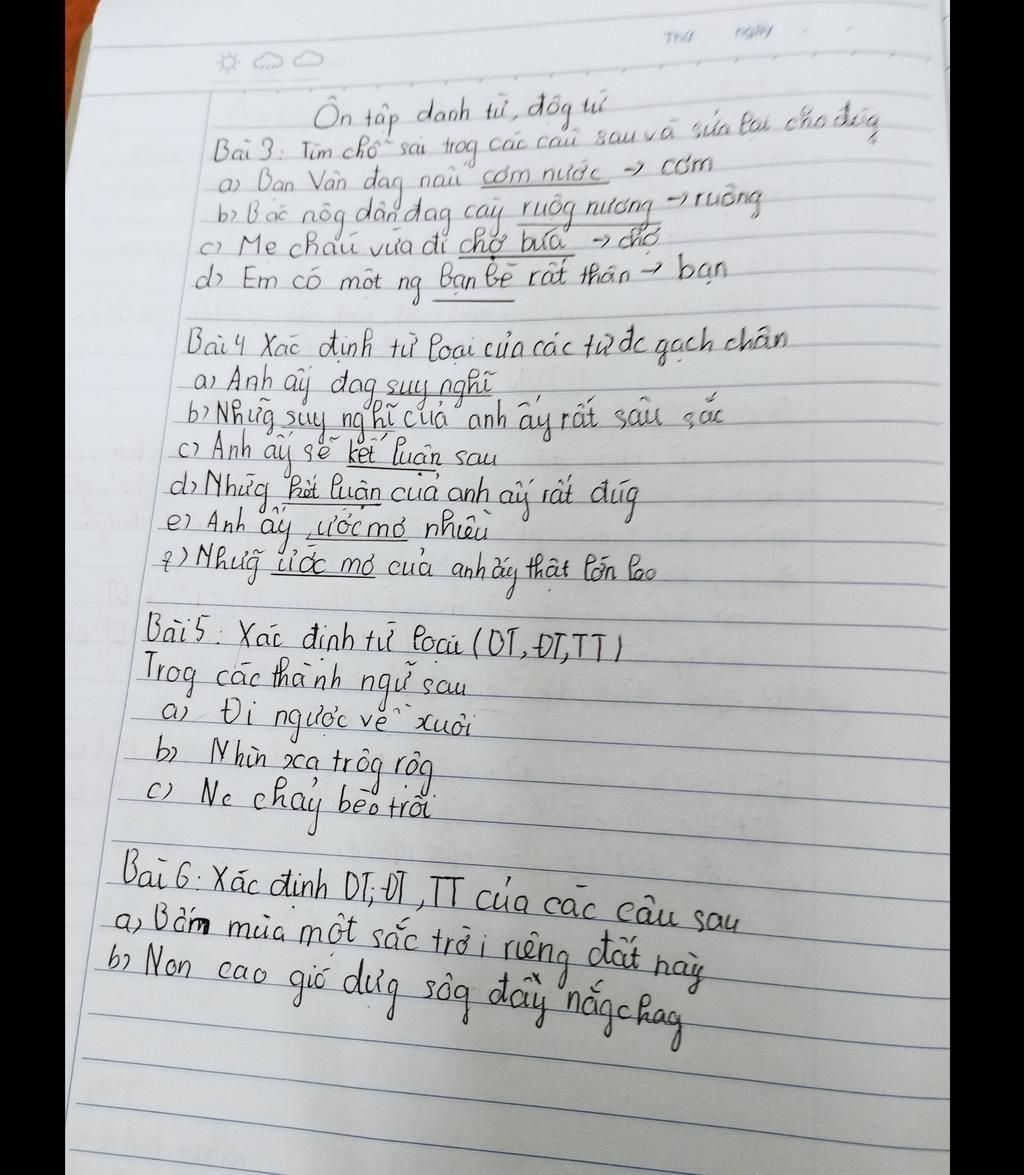 Thứ ngày
Ôn tập danh từ, độg từ
Bài 3: Tìm chỗ sai trog các câu sau và sửa lại cho đúg
a) Bạn Vân đag nấu cơm nước → cơm
b) Bác nôg dân đag cày ruộg nương → ruộng
c) Mẹ cháu vừa đi chợ búa → chợ
d) Em có một ng bạn bè rất thân → bạn
Bài 4 Xác định từ loại của các từ đc gạch chân
a) Anh ấy đag suy nghĩ
b) Nhữg suy nghĩ của anh ấy rất sâu sắc
c) Anh ấy sẽ kết luận sau
d) Nhữg kết luận của anh ấy rất đúg
e) Anh ấy ước mơ nhiều
g) Nhữg ước mơ của anh ấy thật lớn lao
Bài 5: Xác định từ loại (DT, ĐT, TT)
Trog các thành ngữ sau
a) Đi ngược về xuôi
b) Nhìn xa trôg rộg
c) Nc chảy bèo trôi
Bài 6: Xác định DT, ĐT, TT của các câu sau
a) Bốn mùa một sắc trời riêng đất này
b) Non cao gió dựg sôg đầy nắg chag